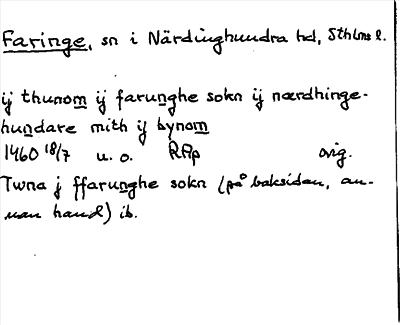 Faringe, sn i Närdinghundra hd, Sthlms l.
ij thunom ij farunghe sokn ij nærdhinge-
hundare mith ij bynom
1460 18/7 u. o. RAp orig.
Twna j ffarunghe sokn (på baksidan, an-
nan hand) ib.